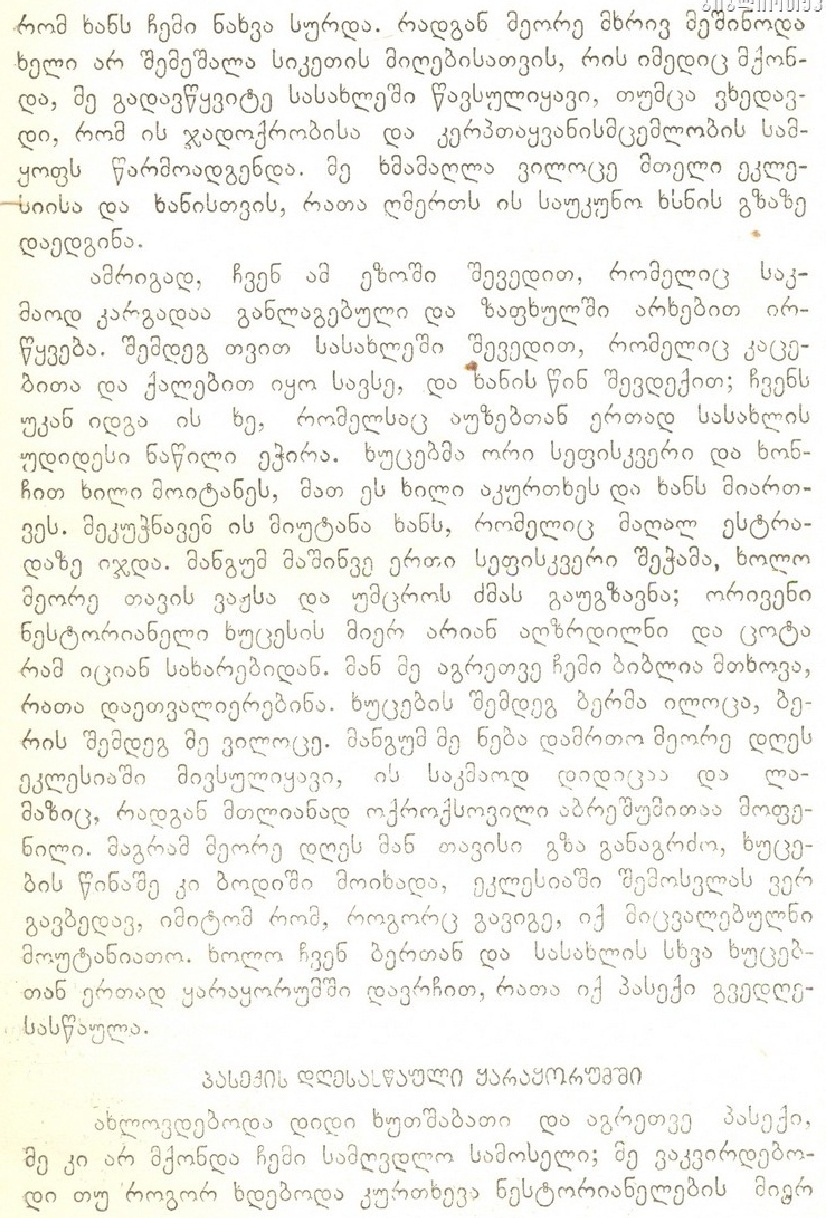 რომ ხანს ჩემი ნახვა სურდა. რადგან მეორე მხრივ მეშინოდა
ხელი არ შემეშალა სიკეთის მიღებისათვის, რის იმედიც მქონ-
და, მე გადავწყვიტე სასახლეში წავსულიყავი, თუმცა ვხედავ-
დი, რომ ის ჯადოქრობისა და კერპთაყვანისმცემლობის სამ-
ყოფს წარმოადგენდა. მე ხმამაღლა ვილოცე მთელი ეკლე-
სიისა და ხანისთვის, რათა ღმერთს ის საუკუნო ხსნის გზაზე
დაედგინა.
ამრიგად, ჩვენ ამ ეზოში შევედით, რომელიც საკ-
მაოდ კარგადაა განლაგებული და ზაფხულში არხებით ირ-
წყვება. შემდეგ თვით სასახლეში შევედით, რომელიც კაცე-
ბითა და ქალებით იყო სავსე, და ხანის წინ შევდექით; ჩვენს
უკან იდგა ის ხე, რომელსაც აუზებთან ერთად სასახლის
უდიდესი ნაწილი ეჭირა. ხუცებმა ორი სეფისკვერი და ხონ-
ჩით ხილი მოიტანეს, მათ ეს ხილი აკურთხეს და ხანს მიართ-
ვეს. მეკუჭნავემ ის მიუტანა ხანს, რომელიც მაღალ ესტრა-
დაზე იჯდა. მანგუმ მაშინვე ერთი სეფისკვერი შეჭამა, ხოლო
მეორე თავის ვაჟსა და უმცროს ძმას გაუგზავნა; ორივენი
ნესტორიანელი ხუცესის მიერ არიან აღზრდილნი და ცოტა
რამ იციან სახარებიდან. მან მე აგრეთვე ჩემი ბიბლია მთხოვა,
რათა დაეთვალიერებინა. ხუცების შემდეგ ბერმა ილოცა, ბე-
რის შემდეგ მე ვილოცე. მანგუმ მე ნება დამრთო მეორე დღეს
ეკლესიაში მივსულიყავი, ის საკმაოდ დიდიცაა და ლა-
მაზიც, რადგან მთლიანად ოქროქსოვილი აბრეშუმითაა მოფე-
ნილი. მაგრამ მეორე დღეს მან თავისი გზა განაგრძო, ხუცე-
ბის წინაშე კი ბოდიში მოიხადა, ეკლესიაში შემოსვლას ვერ
გავბედავ, იმიტომ რომ, როგორც გავიგე, იქ მიცვალებულნი
მოუტანიათო. ხოლო ჩვენ ბერთან და სასახლის სხვა ხუცებ-
თან ერთად ყარაყორუმში დავრჩით, რათა იქ პასექი გვედღე-
სასწაულა.
პასექის დღესასწაული ყარაყორუმში
ახლოვდებოდა დიდი ხუთშაბათი და აგრეთვე პასექი,
მე კი არ მქონდა ჩემი სამღვდლო სამოსელი; მე ვაკვირდებო-
დი თუ როგორ ხდებოდა კურთხევა ნესტორიანელების მიერ